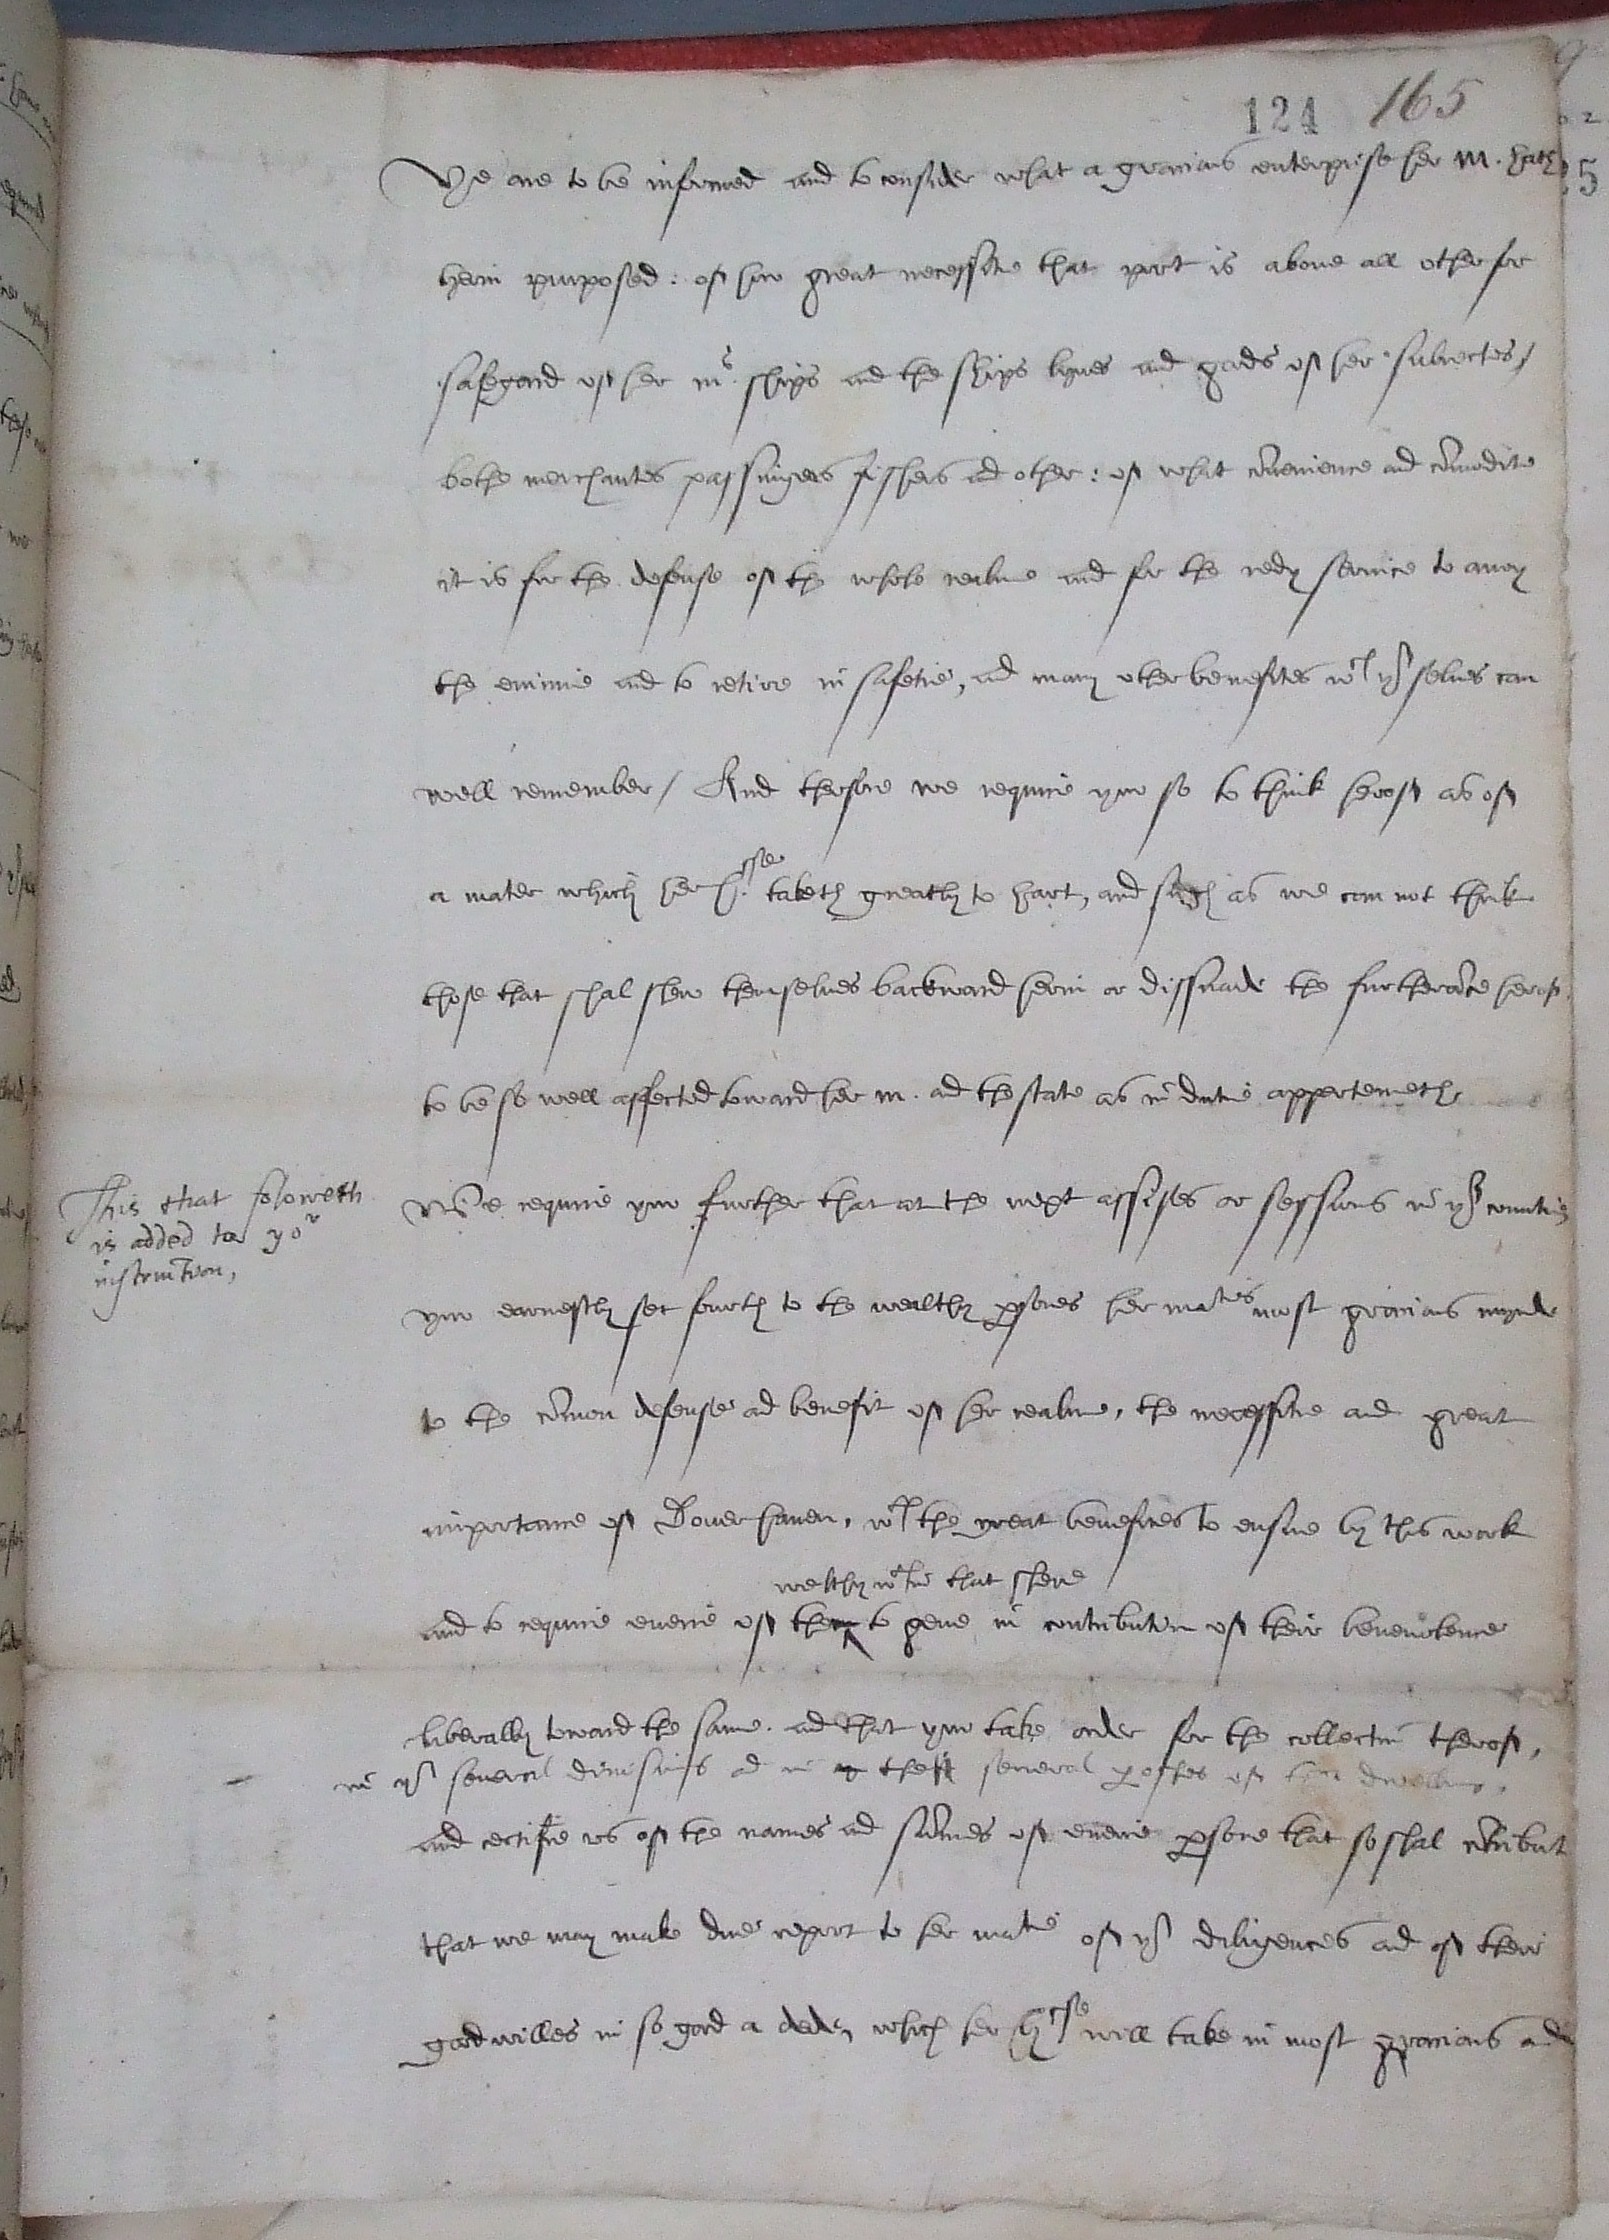 124 165
Ye are to be informed and to consider what a gracious enterprise her M. hath
herin purposed: of how great necessitie that port is aboue all other for
safegard of her ms. ships and the ships lyues and goods of her subiectes /
bothe merchantes passingers fishers ad other: of what cōuenience and cōmoditie
it is for the defense of the whole realme and for the redy seruice to anoy
the enimie and to retire in safetie, ad many other benefites wch yor selues can
well remember / And therfore we require yow so to think herof as of
a mater which her h.sse taketh greatly to hart, and such as we can not think
those that shal shew themselues backward herin or dissuade the furtherāce herof.
to be so well affected toward her m. ad the state as in dutie apperteineth.
This that foloweth
is added to yor
instruction,
We require yow further that at the next assises or sessions in yor countie
yow earnestly set fourth to the wealthy psones her maties most gracious mynde
to the cōmon defense ad benefit of her realme, the necessitie and great
importance of Douer hauen, wth the great benefites to ensue by this work
welthy wthin that shere
and to require euerie of them to geue in contribution of their beneuolence
liberally toward the same. ad that yow take order for the collectiō therof,
in yor seueral diuisions ad in the seueral poshes of their dwelling,
and certifie vs of the names ad sūmes of euerie psone that so shal cōtribut
that we may make due report to her matie of yor diligences ad of their
good willes in so good a dede, which her hysse will take in most gracious ad